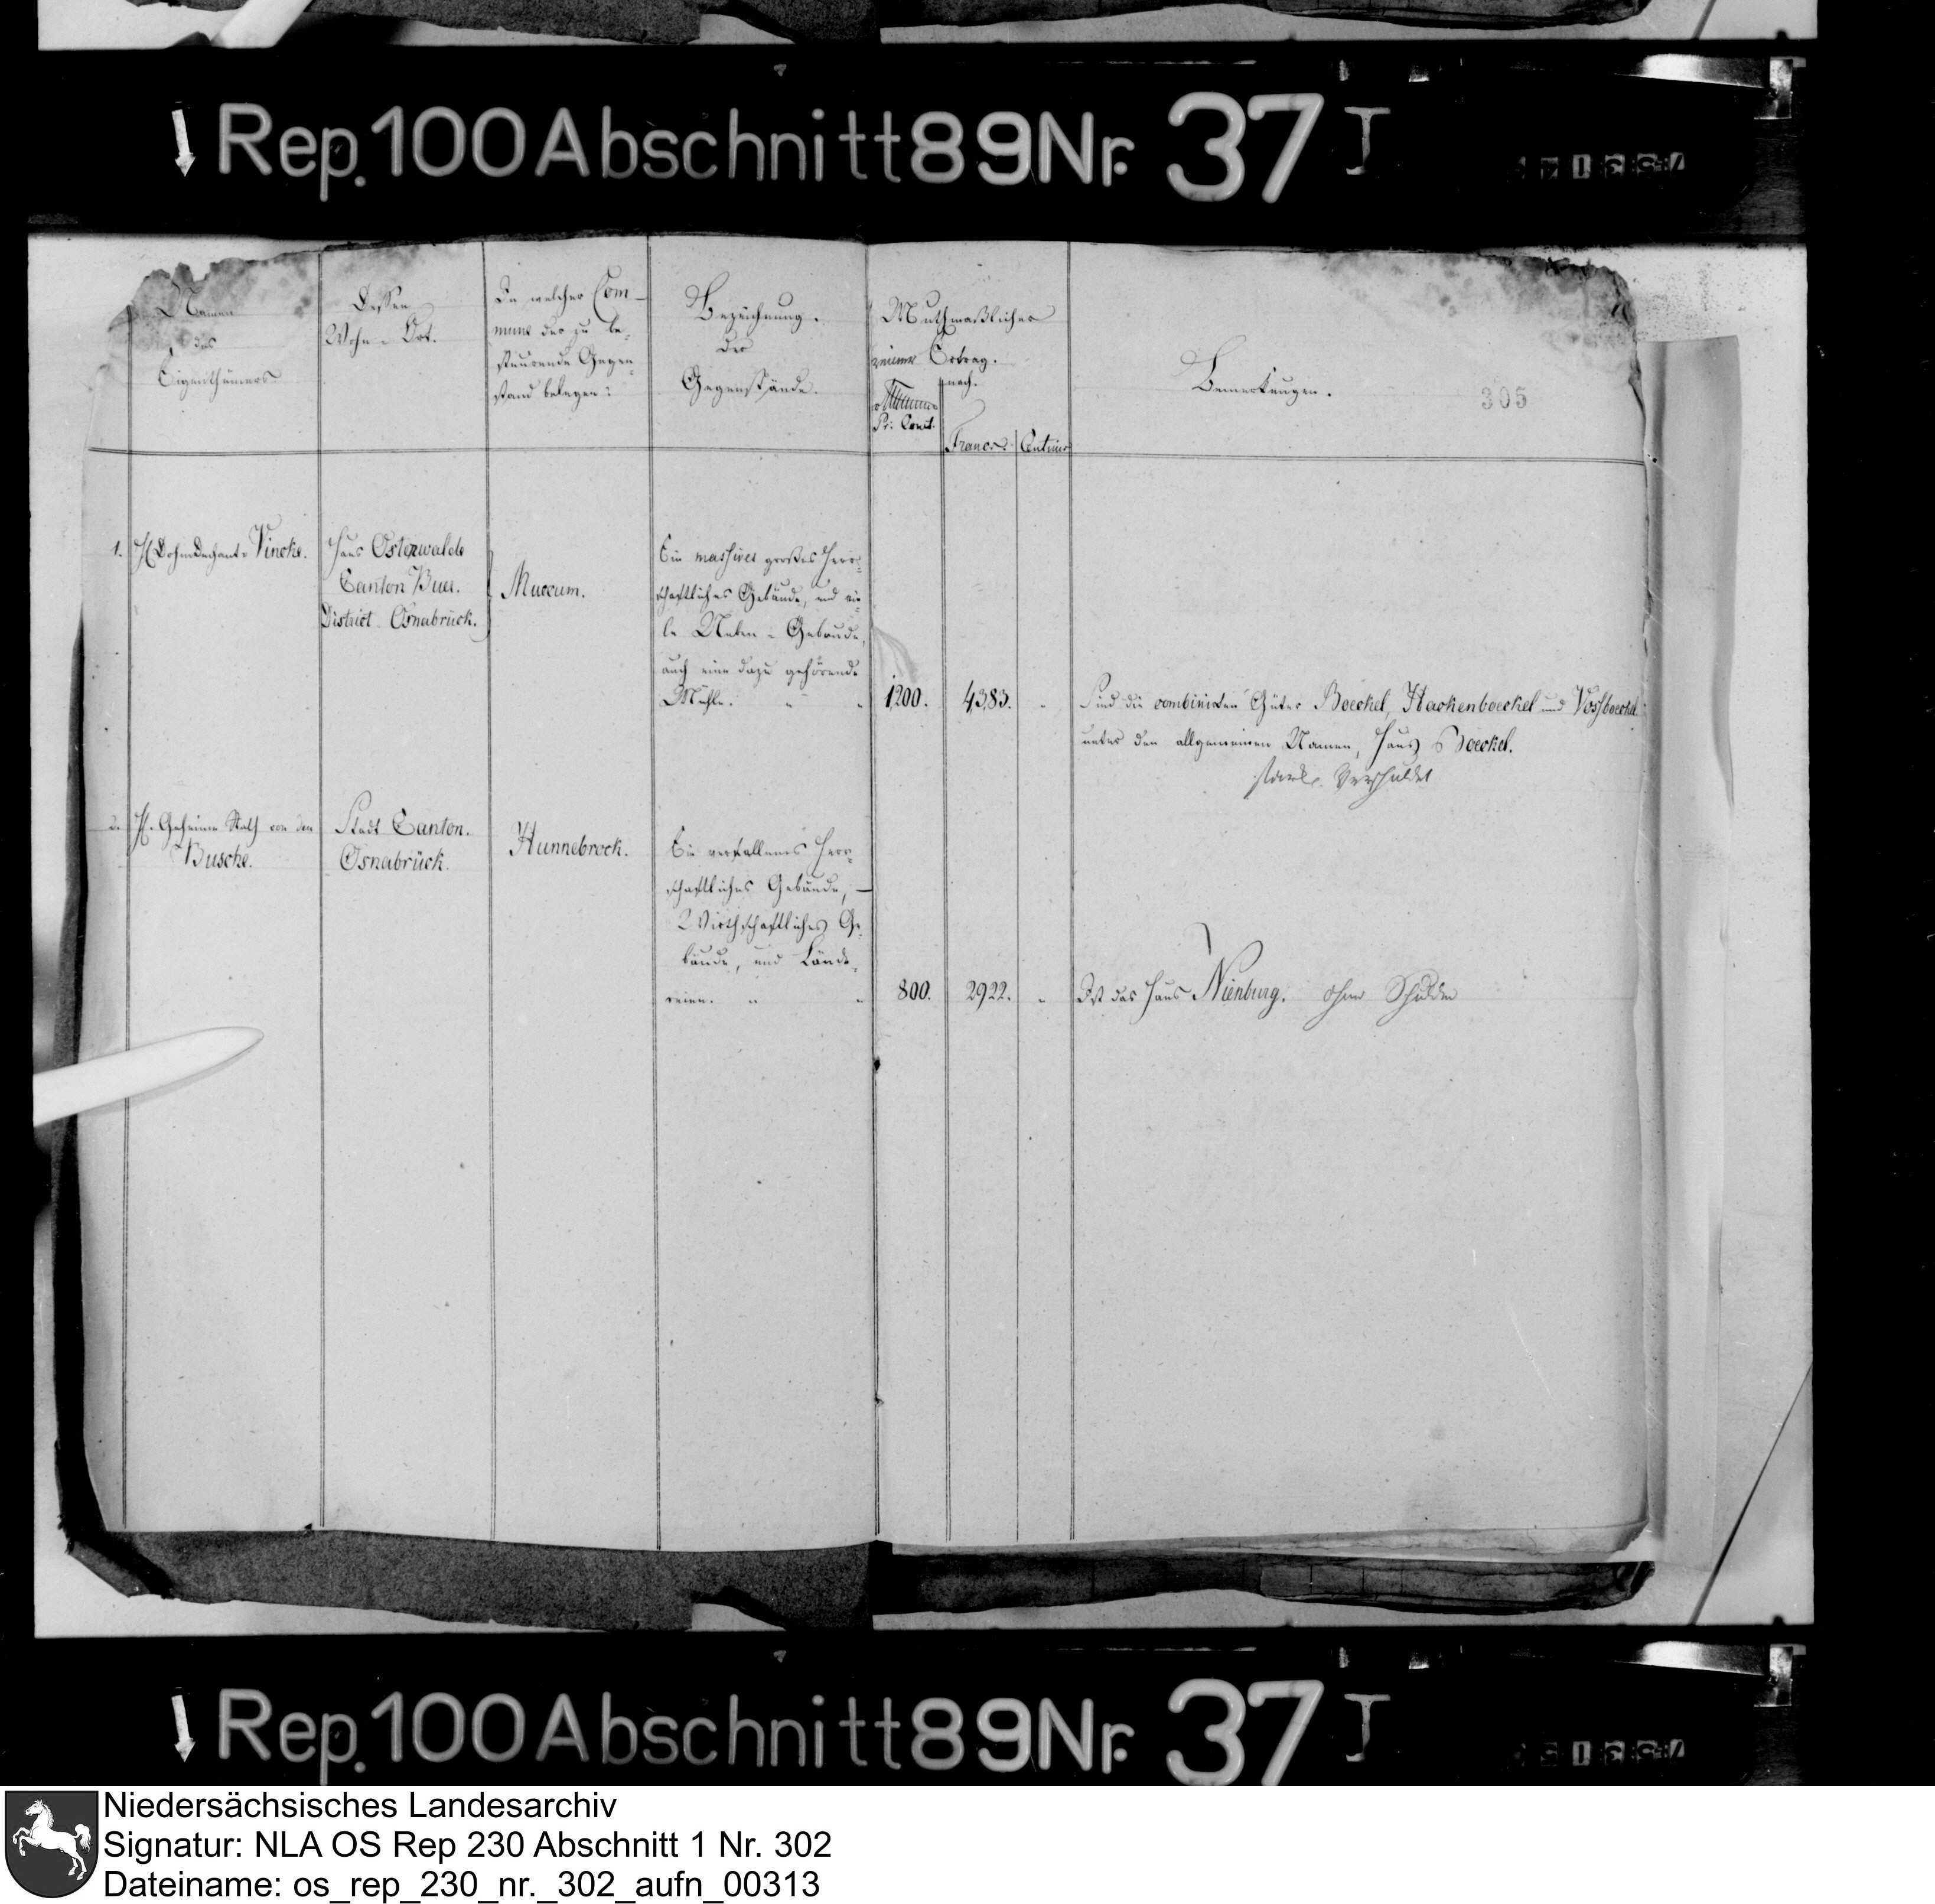 Rep. 100 Abschnitt 89 Nr. 37 I
Namen
des
Eigenthümers.
Dessen
Wohn-Ort.
In welcher Com-
mune der zu be-
steurende Gegen-
stand belegen:
Bezeichnung.
der
Gegenstände.
Muthmaßlicher
Ertrag.
nach.
Pr: Cour.
Francs
Centimes
Bemerkungen.
305
1. H. Dohmdechant v Vincke.
Haus Osterwalde
Canton Buer.
District Osnabrück.
Muccum.
Ein massives großes Herr-
schaftliches Gebäude, und vie-
le Neben-Gebäude,
auch eine dazu gehörende
Mühle. " "
1200. 4383. "
Sind die combinirten Güter Boeckel, Hackenboeckel und Vosboeckel
unter den allgemeinen Namen, Haus Boeckel.
stark verschuldet
2. H. Geheime Rath von dem
Busche.
Stadt Canton.
Osnabrück.
Hunnebrock.
Ein verfallenes Herr-
schaftliches Gebäude, —
Wirthschaftliches Ge-
bäude, und Lände-
reien. " "
800. 2922. "
Ist das Haus Nienburg. ohne Schulden
Rep. 100 Abschnitt 89 Nr. 37 I
Niedersächsisches Landesarchiv
Signatur: NLA OS Rep 230 Abschnitt 1 Nr. 302
Dateiname: os_rep_230_nr._302_aufn_00313